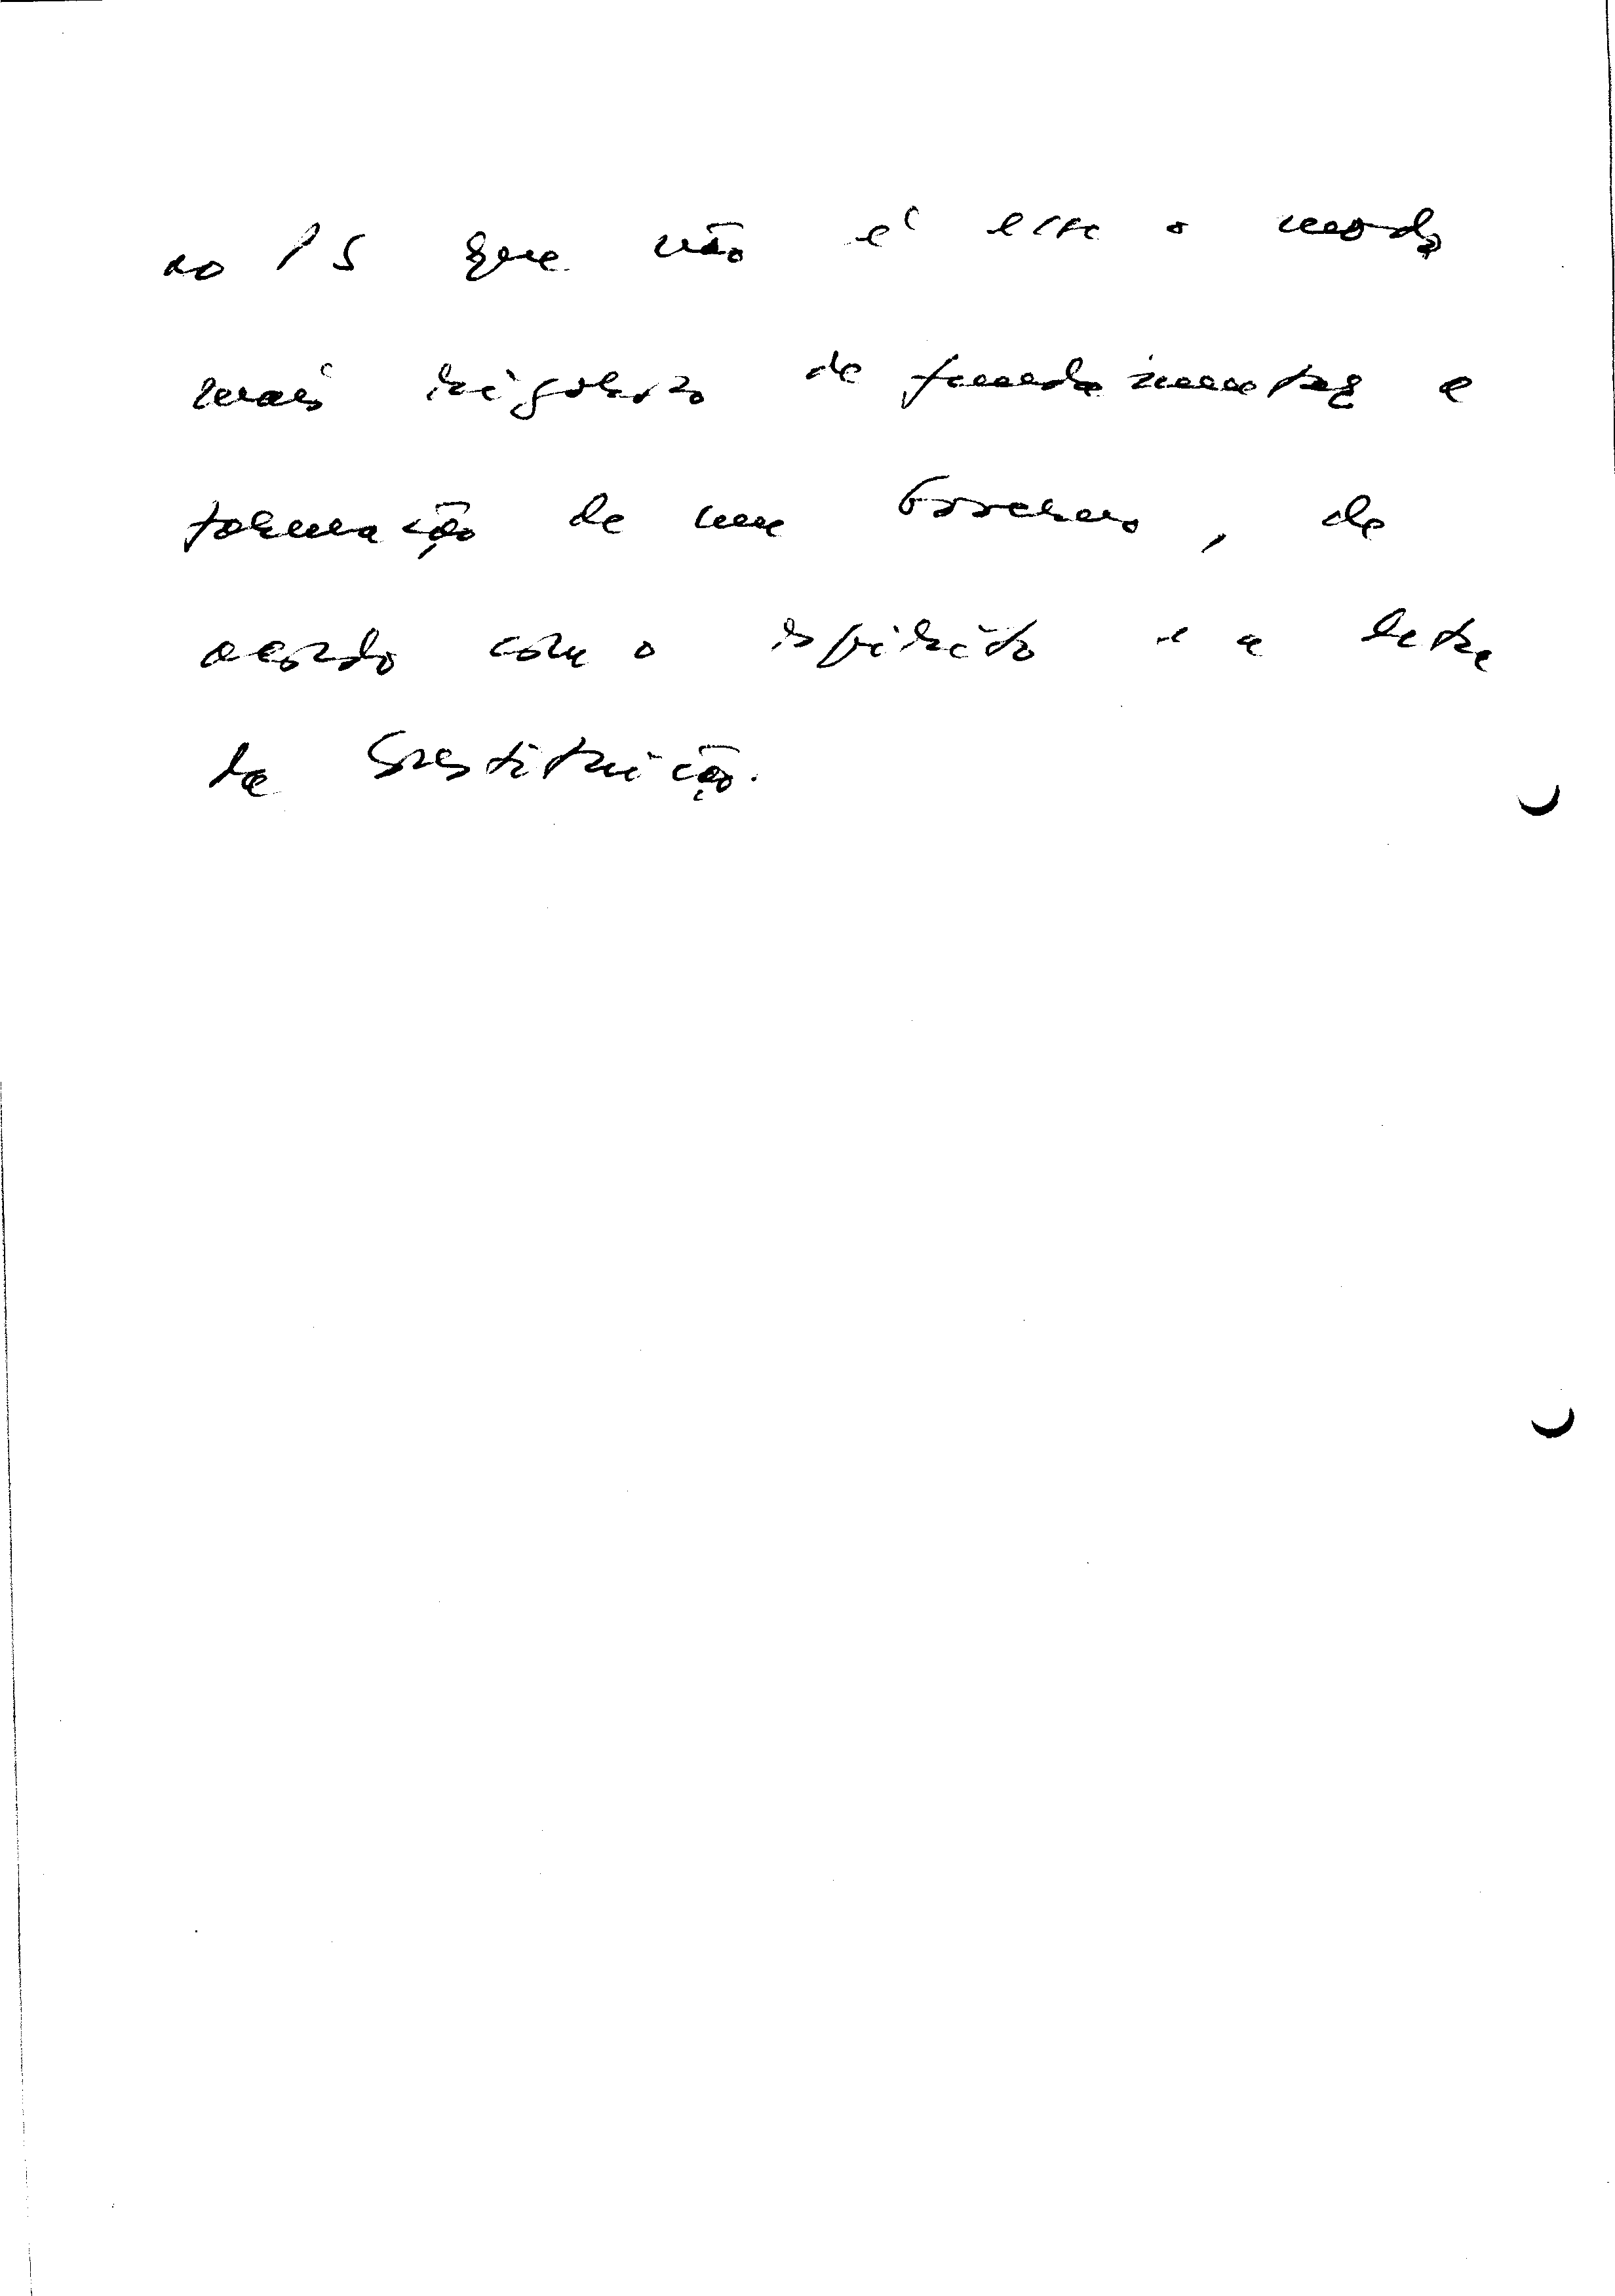 ao PS que não é esse o modo
mais rigoroso de fundamentar a
formação de um Governo, de
acordo com o espírito e a letra
da Constituição.